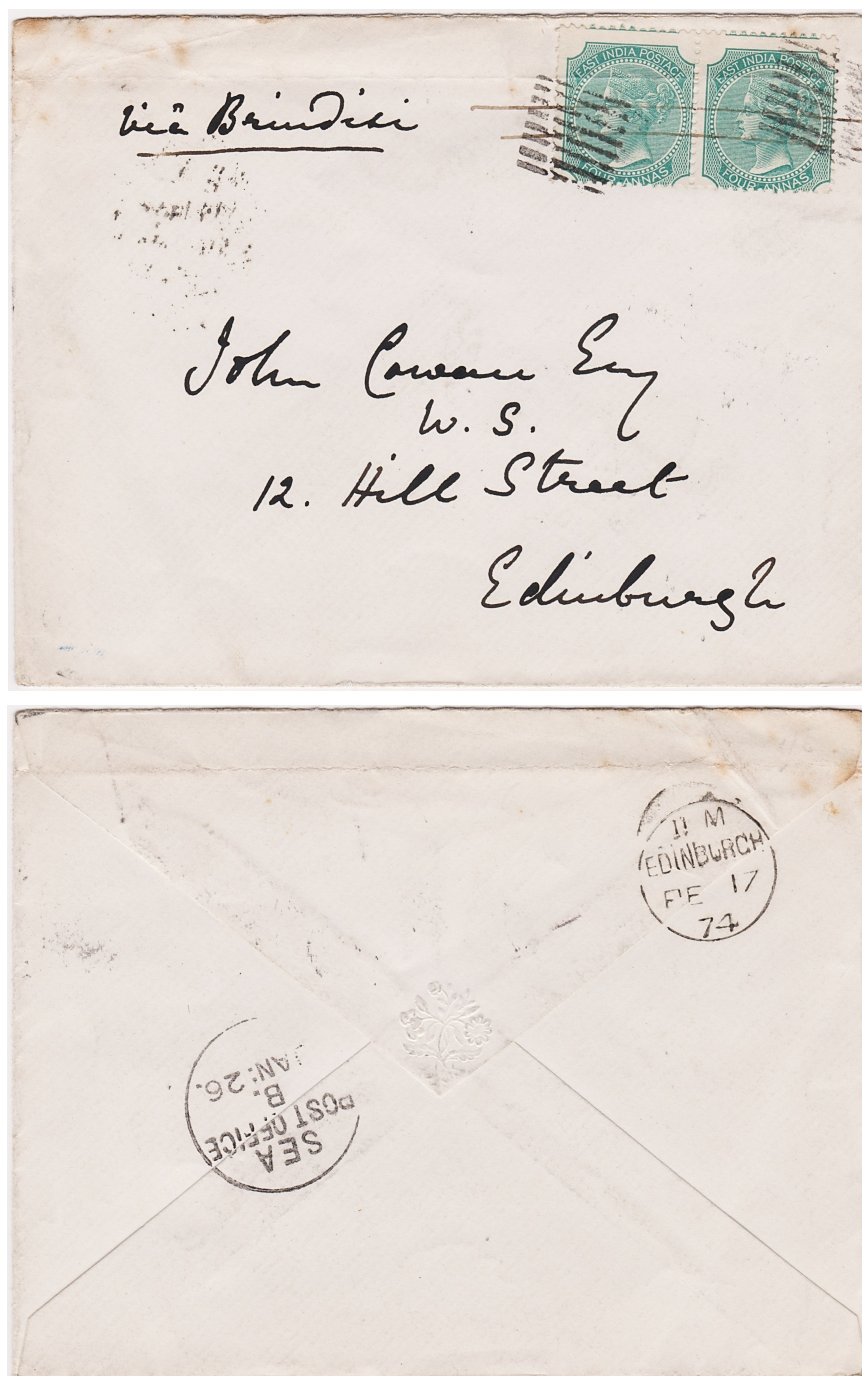 EAST INDIA POSTAGE
FOUR ANNAS
EAST INDIA POSTAGE
FOUR ANNAS
viâ Brindisi
John Cowan Esq
W. S.
12. Hill Street
Edinburgh
11 M
EDINBURGH
FE 17
74
SEA
POST OFFICE
B.
JAN: 26.